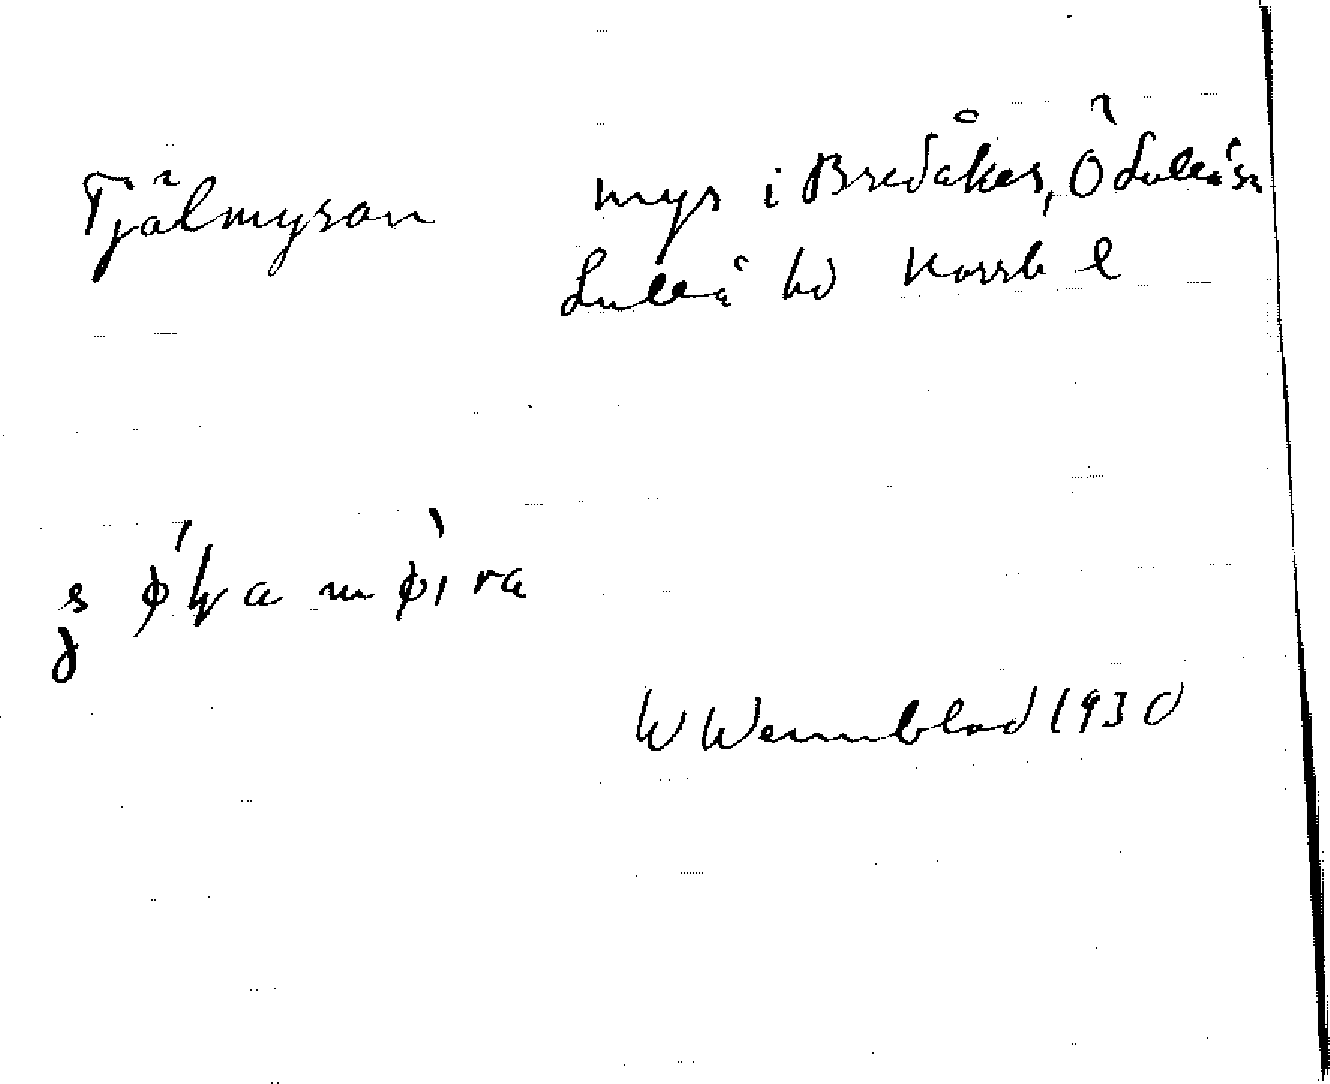 Tjälmyran myr i Bredåker, Ö Luleå sn
Luleå hd Norrb l
W Wennblad 1930